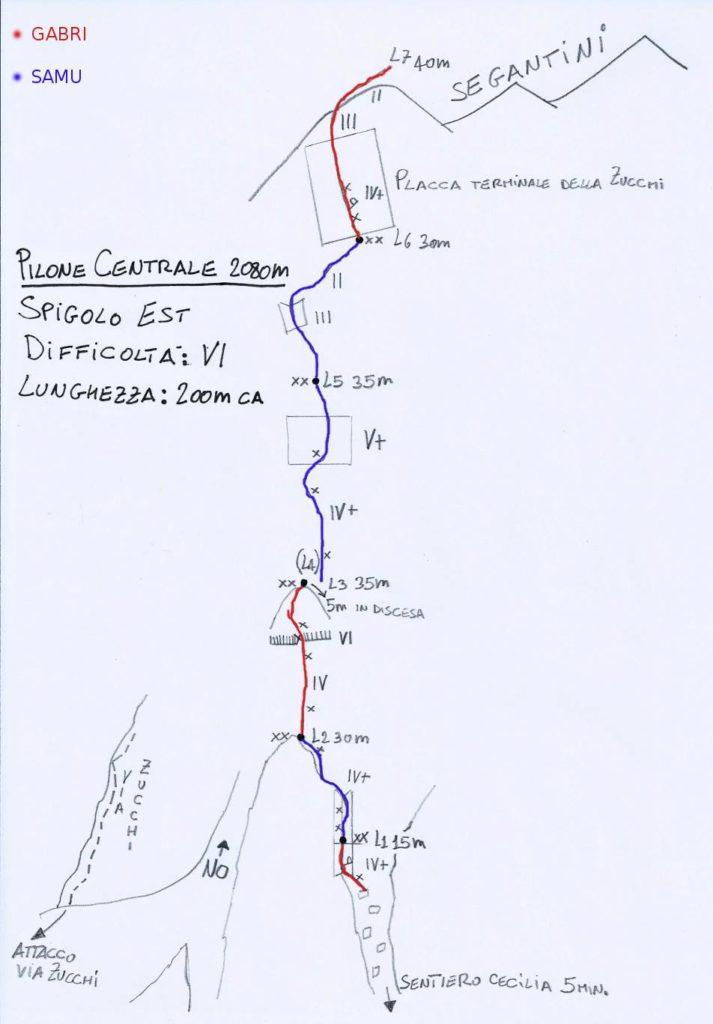 GABRI
SAMU
L7 40m
SEGANTINI
II
III
IV+
PLACCA TERMINALE DELLA ZUCCHI
xx L6 30m
PILONE CENTRALE 2080m
SPIGOLO EST
DIFFICOLTÀ: VI
LUNGHEZZA: 200m CA
II
III
xx L5 35m
V+
IV+
(L4)
xx L3 35m
5m IN DISCESA
VI
IV
xx L2 30m
IV+
VIA ZUCCHI
xx L1 15m
IV+
NO
ATTACCO
VIA ZUCCHI
SENTIERO CECILIA 5MIN.